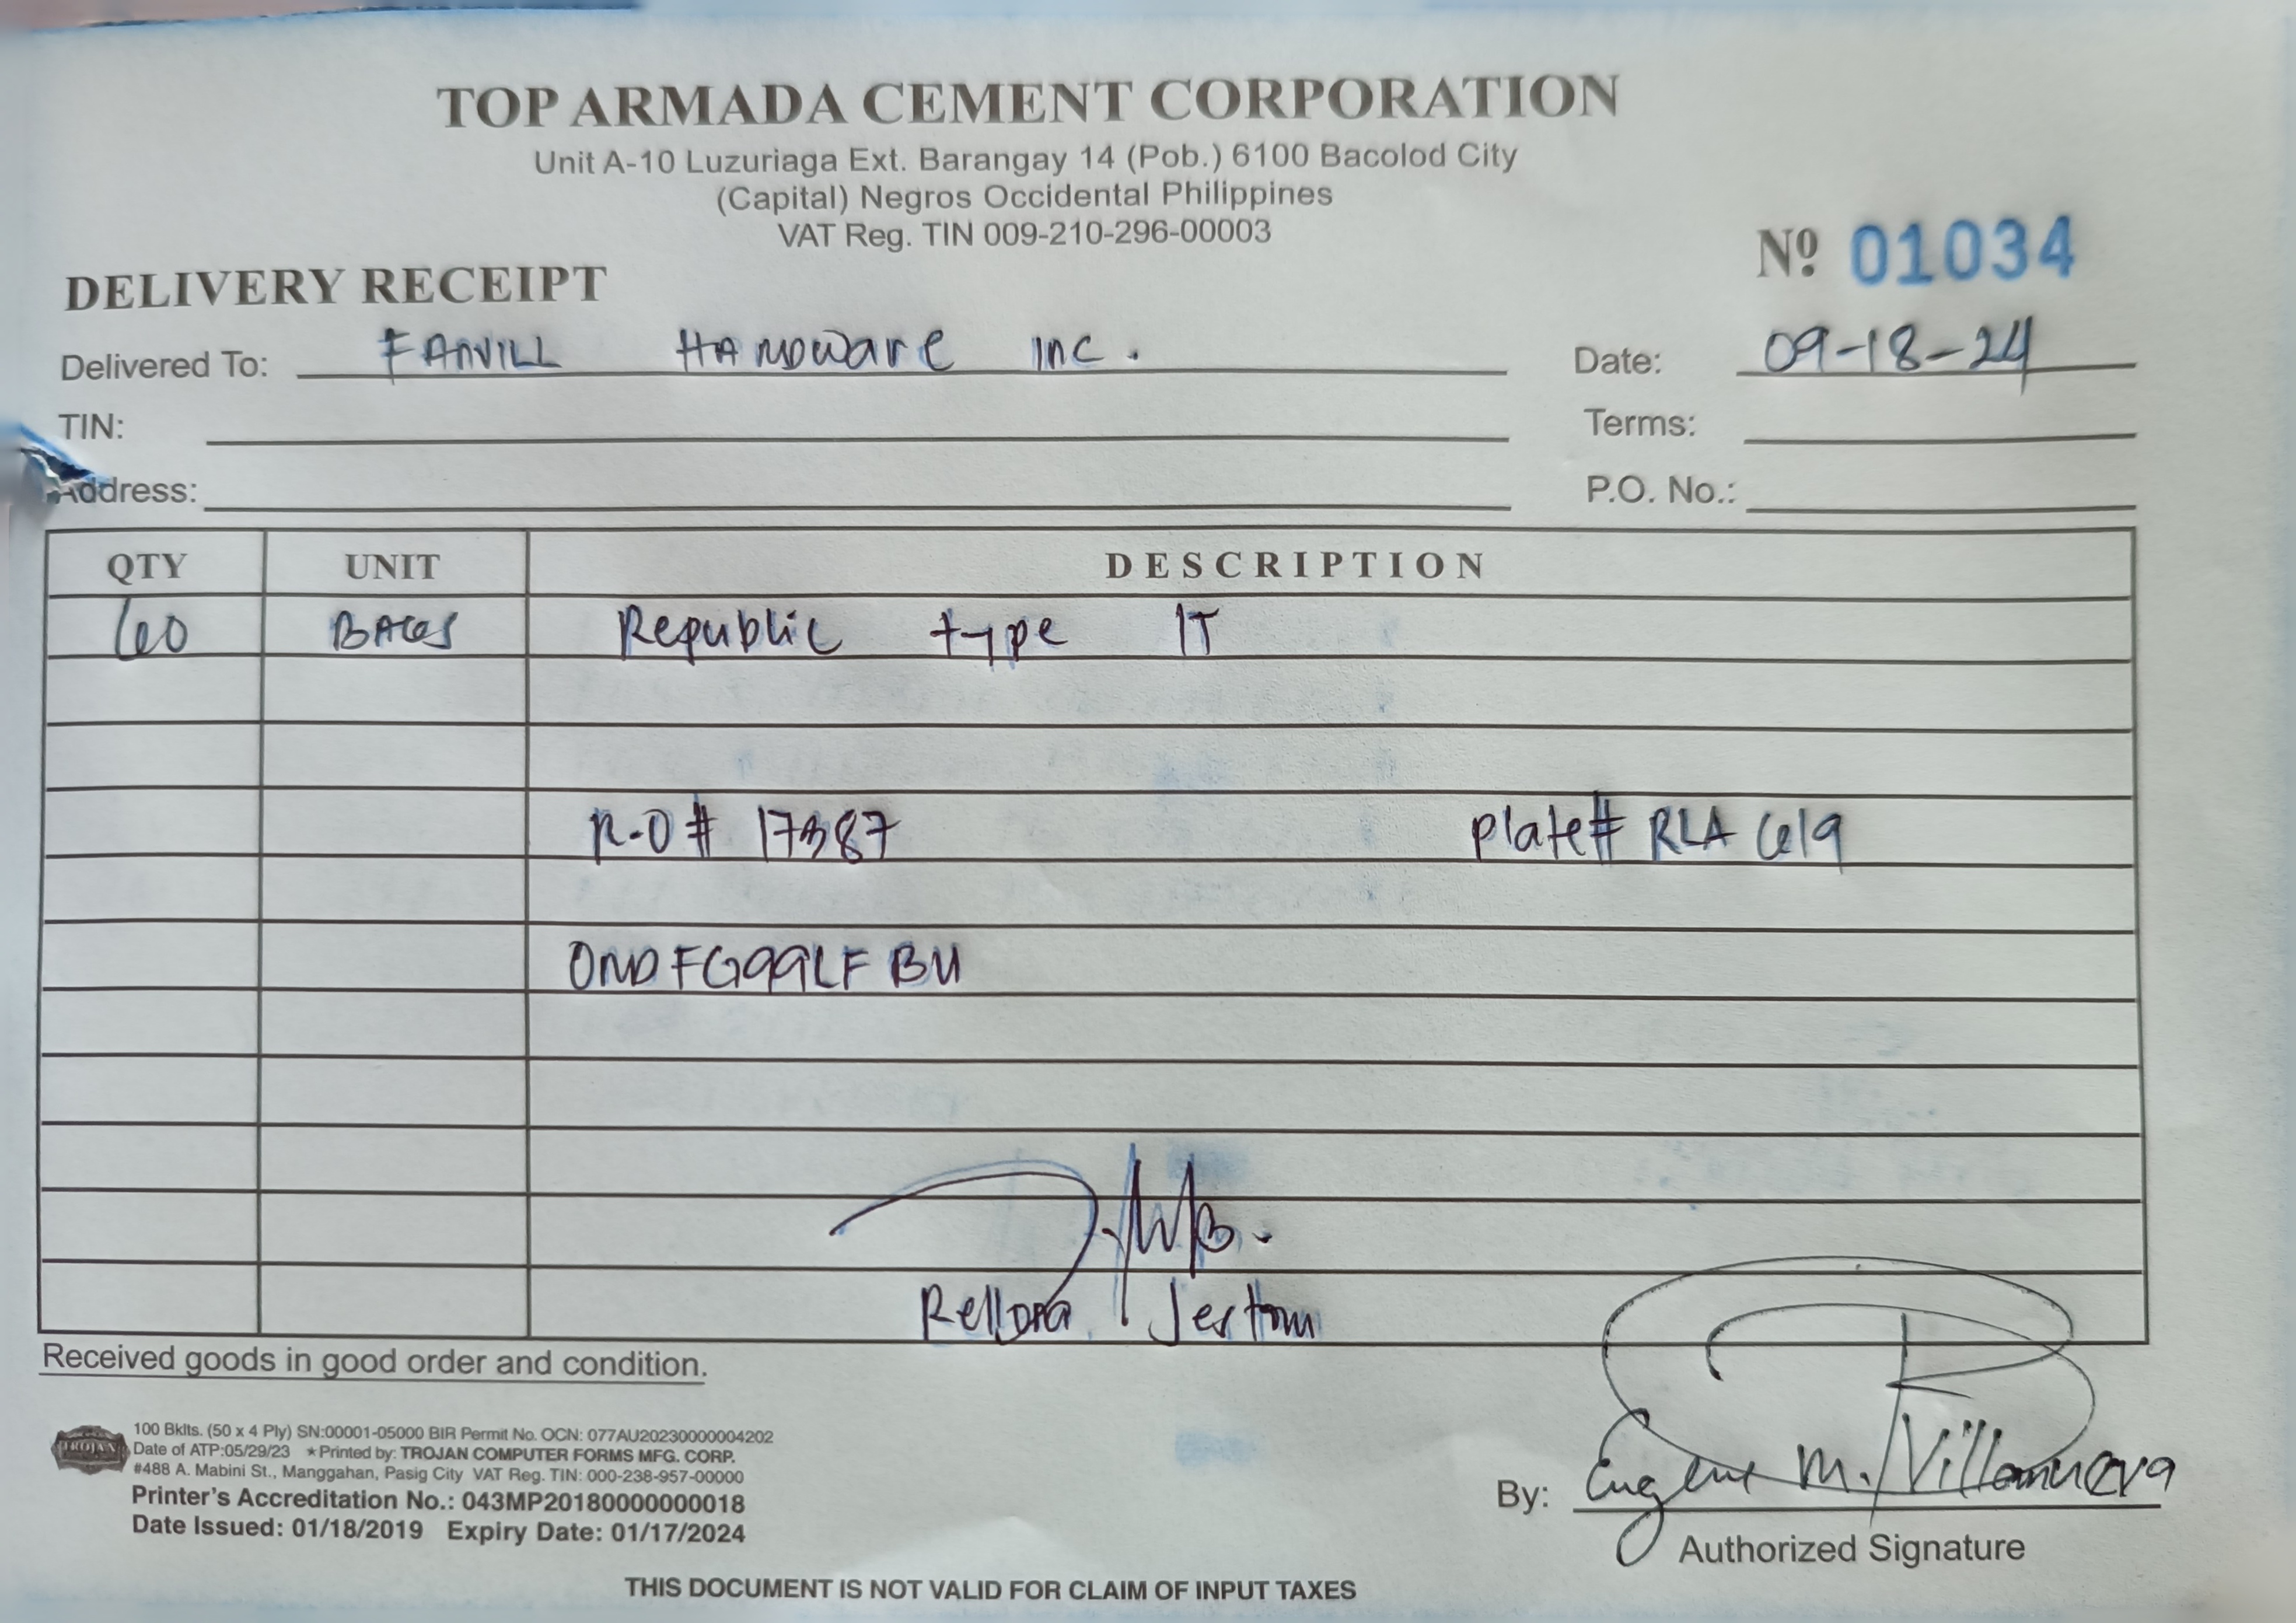 TOP ARMADA CEMENT CORPORATION
Unit A-10 Luzuriaga Ext. Barangay 14 (Pob.) 6100 Bacolod City
(Capital) Negros Occidental Philippines
VAT Reg. TIN 009-210-296-00003
Nº 01034
DELIVERY RECEIPT
Delivered To: FANVILL HARDWARE INC. Date: 09-18-24
TIN: Terms:
Address: P.O. No.:
QTY UNIT DESCRIPTION
60 BAGS Republic type 1T
R-O# 17387 Plate# RLA 619
OND FG99LF BU
Rellora Jestom
Received goods in good order and condition.
TROJAN
100 Bklts. (50 x 4 Ply) SN:00001-05000 BIR Permit No. OCN: 077AU20230000004202
Date of ATP:05/29/23 ★Printed by: TROJAN COMPUTER FORMS MFG. CORP.
#488 A. Mabini St., Manggahan, Pasig City VAT Reg. TIN: 000-238-957-00000
Printer's Accreditation No.: 043MP20180000000018
Date Issued: 01/18/2019 Expiry Date: 01/17/2024
By: Eugene M. Villanueva
Authorized Signature
THIS DOCUMENT IS NOT VALID FOR CLAIM OF INPUT TAXES